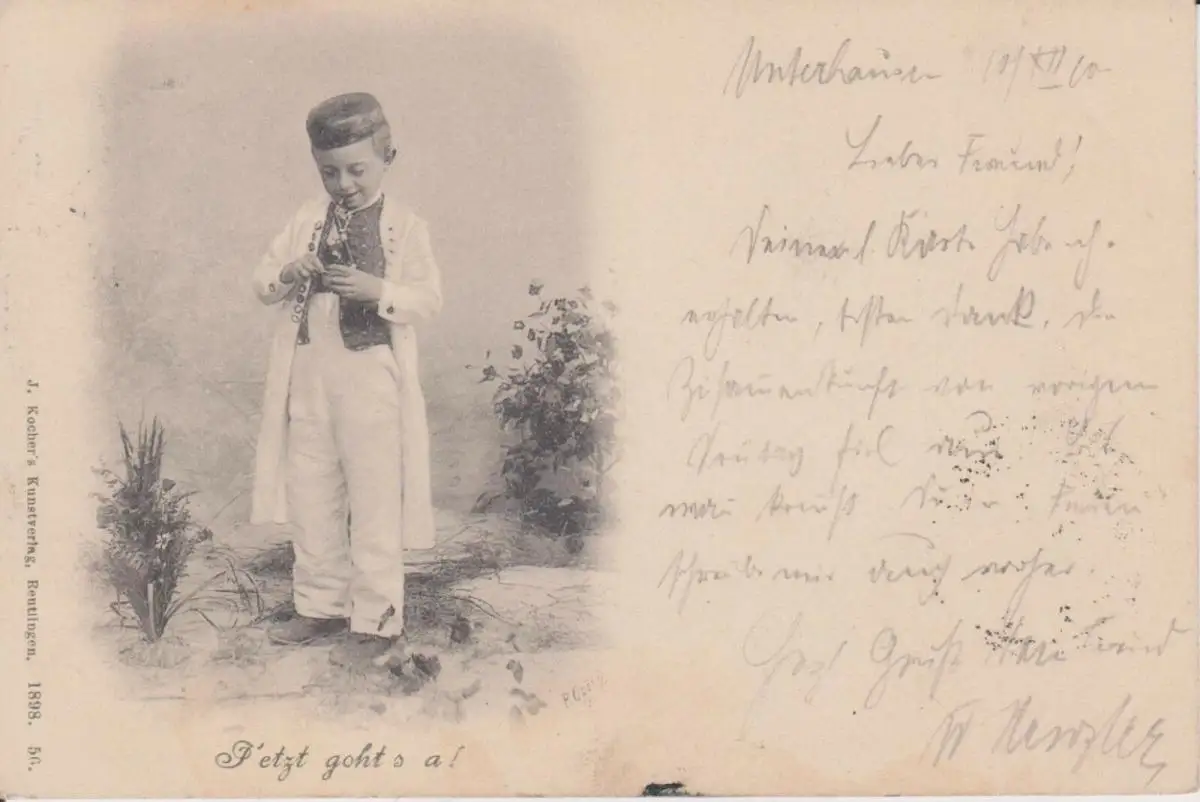 J. Kocher's Kunstverlag, Reutlingen. 1898. 56.
Jetzt goht s a!
Unterhausen
Lieber Freund!
Deine Karte habe ich
erhalten, besten Dank, die
Zusammenkunft von vorigem
Sontag fiel
schreibe mir doch vorher.
Herzl Gruß Dein Freund
W Henzler